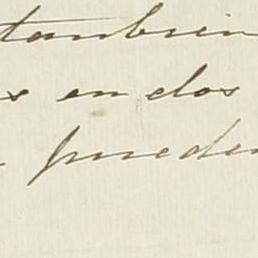 tambien
s en dos
pueden